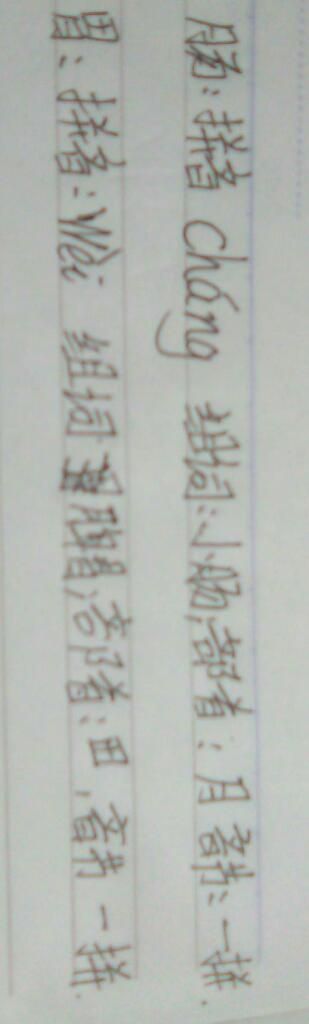 肠：拼音 cháng 组词：小肠，部首：月 音书：一拼.
胃：拼音：Wèi 组词 肠胃，部首：田，音书 一拼.